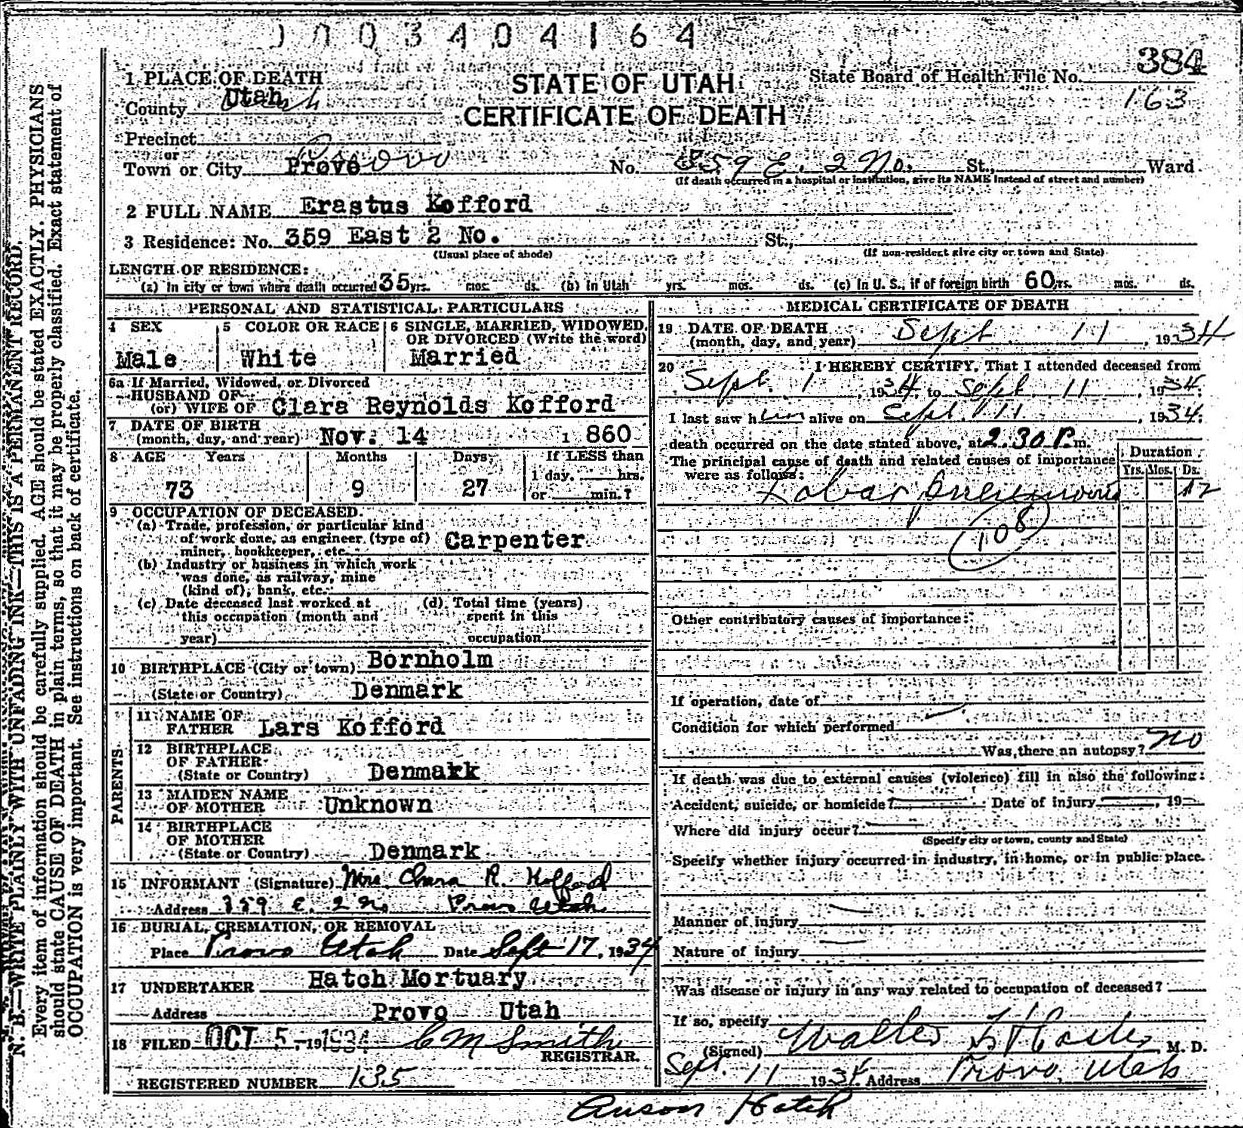 0003404164
1 PLACE OF DEATH
County Utah
STATE OF UTAH
CERTIFICATE OF DEATH
State Board of Health File No. 384
163
Precinct
or
Town or City Provo
No. 359 E. 2 No. St., Ward
(If death occurred in a hospital or institution, give its NAME instead of street and number)
2 FULL NAME Erastus Kofford
3 Residence: No. 359 East 2 No. St.,
(Usual place of abode) (If non-resident give city or town and State)
LENGTH OF RESIDENCE:
(a) In city or town where death occurred 35 yrs. mos. ds. (b) In Utah yrs. mos. ds. (c) In U. S., if of foreign birth 60 yrs. mos. ds.
PERSONAL AND STATISTICAL PARTICULARS
4 SEX
Male
5 COLOR OR RACE
White
6 SINGLE, MARRIED, WIDOWED,
OR DIVORCED (Write the word)
Married
6a If Married, Widowed, or Divorced
HUSBAND OF
(or) WIFE OF Clara Reynolds Kofford
7 DATE OF BIRTH
(month, day, and year) Nov. 14 1 860
8 AGE Years Months Days If LESS than
1 day, hrs.
73 9 27 or min.?
9 OCCUPATION OF DECEASED
(a) Trade, profession, or particular kind
of work done, as engineer (type of)
miner, bookkeeper, etc. Carpenter
(b) Industry or business in which work
was done, as railway, mine
(kind of), bank, etc.
(c) Date deceased last worked at
this occupation (month and
year)
(d) Total time (years)
spent in this
occupation
10 BIRTHPLACE (City or town) Bornholm
(State or Country) Denmark
PARENTS
11 NAME OF
FATHER Lars Kofford
12 BIRTHPLACE
OF FATHER
(State or Country) Denmark
13 MAIDEN NAME
OF MOTHER Unknown
14 BIRTHPLACE
OF MOTHER
(State or Country) Denmark
15 INFORMANT (Signature) Mrs Clara R. Kofford
Address 359 E. 2 No Provo Utah
16 BURIAL, CREMATION, OR REMOVAL
Place Provo Utah Date Sept 17, 1934
17 UNDERTAKER Hatch Mortuary
Address Provo Utah
18 FILED OCT 5, 1934 C M Smith
REGISTRAR.
REGISTERED NUMBER 135
MEDICAL CERTIFICATE OF DEATH
19 DATE OF DEATH
(month, day, and year) Sept 11, 1934
20 I HEREBY CERTIFY, That I attended deceased from
Sept. 1, 1934, to Sept 11, 1934.
I last saw him alive on Sept 11, 1934.
death occurred on the date stated above, at 2.30 P. m.
The principal cause of death and related causes of importance
were as follows:
Duration
Yrs. Mos. Ds.
Lobar pneumonia 12
108
Other contributory causes of importance:
If operation, date of
Condition for which performed
Was there an autopsy? No
If death was due to external causes (violence) fill in also the following:
Accident, suicide, or homicide? Date of injury , 19
Where did injury occur?
(Specify city or town, county and State)
Specify whether injury occurred in industry, in home, or in public place.
Manner of injury
Nature of injury
Was disease or injury in any way related to occupation of deceased?
If so, specify
(Signed) Walter T Hasler M. D.
Sept. 11 1934 Address Provo, Utah
Anson Hatch
N. B.—WRITE PLAINLY WITH UNFADING INK—THIS IS A PERMANENT RECORD.
Every item of information should be carefully supplied. AGE should be stated EXACTLY. PHYSICIANS
should state CAUSE OF DEATH in plain terms, so that it may be properly classified. Exact statement of
OCCUPATION is very important. See instructions on back of certificate.